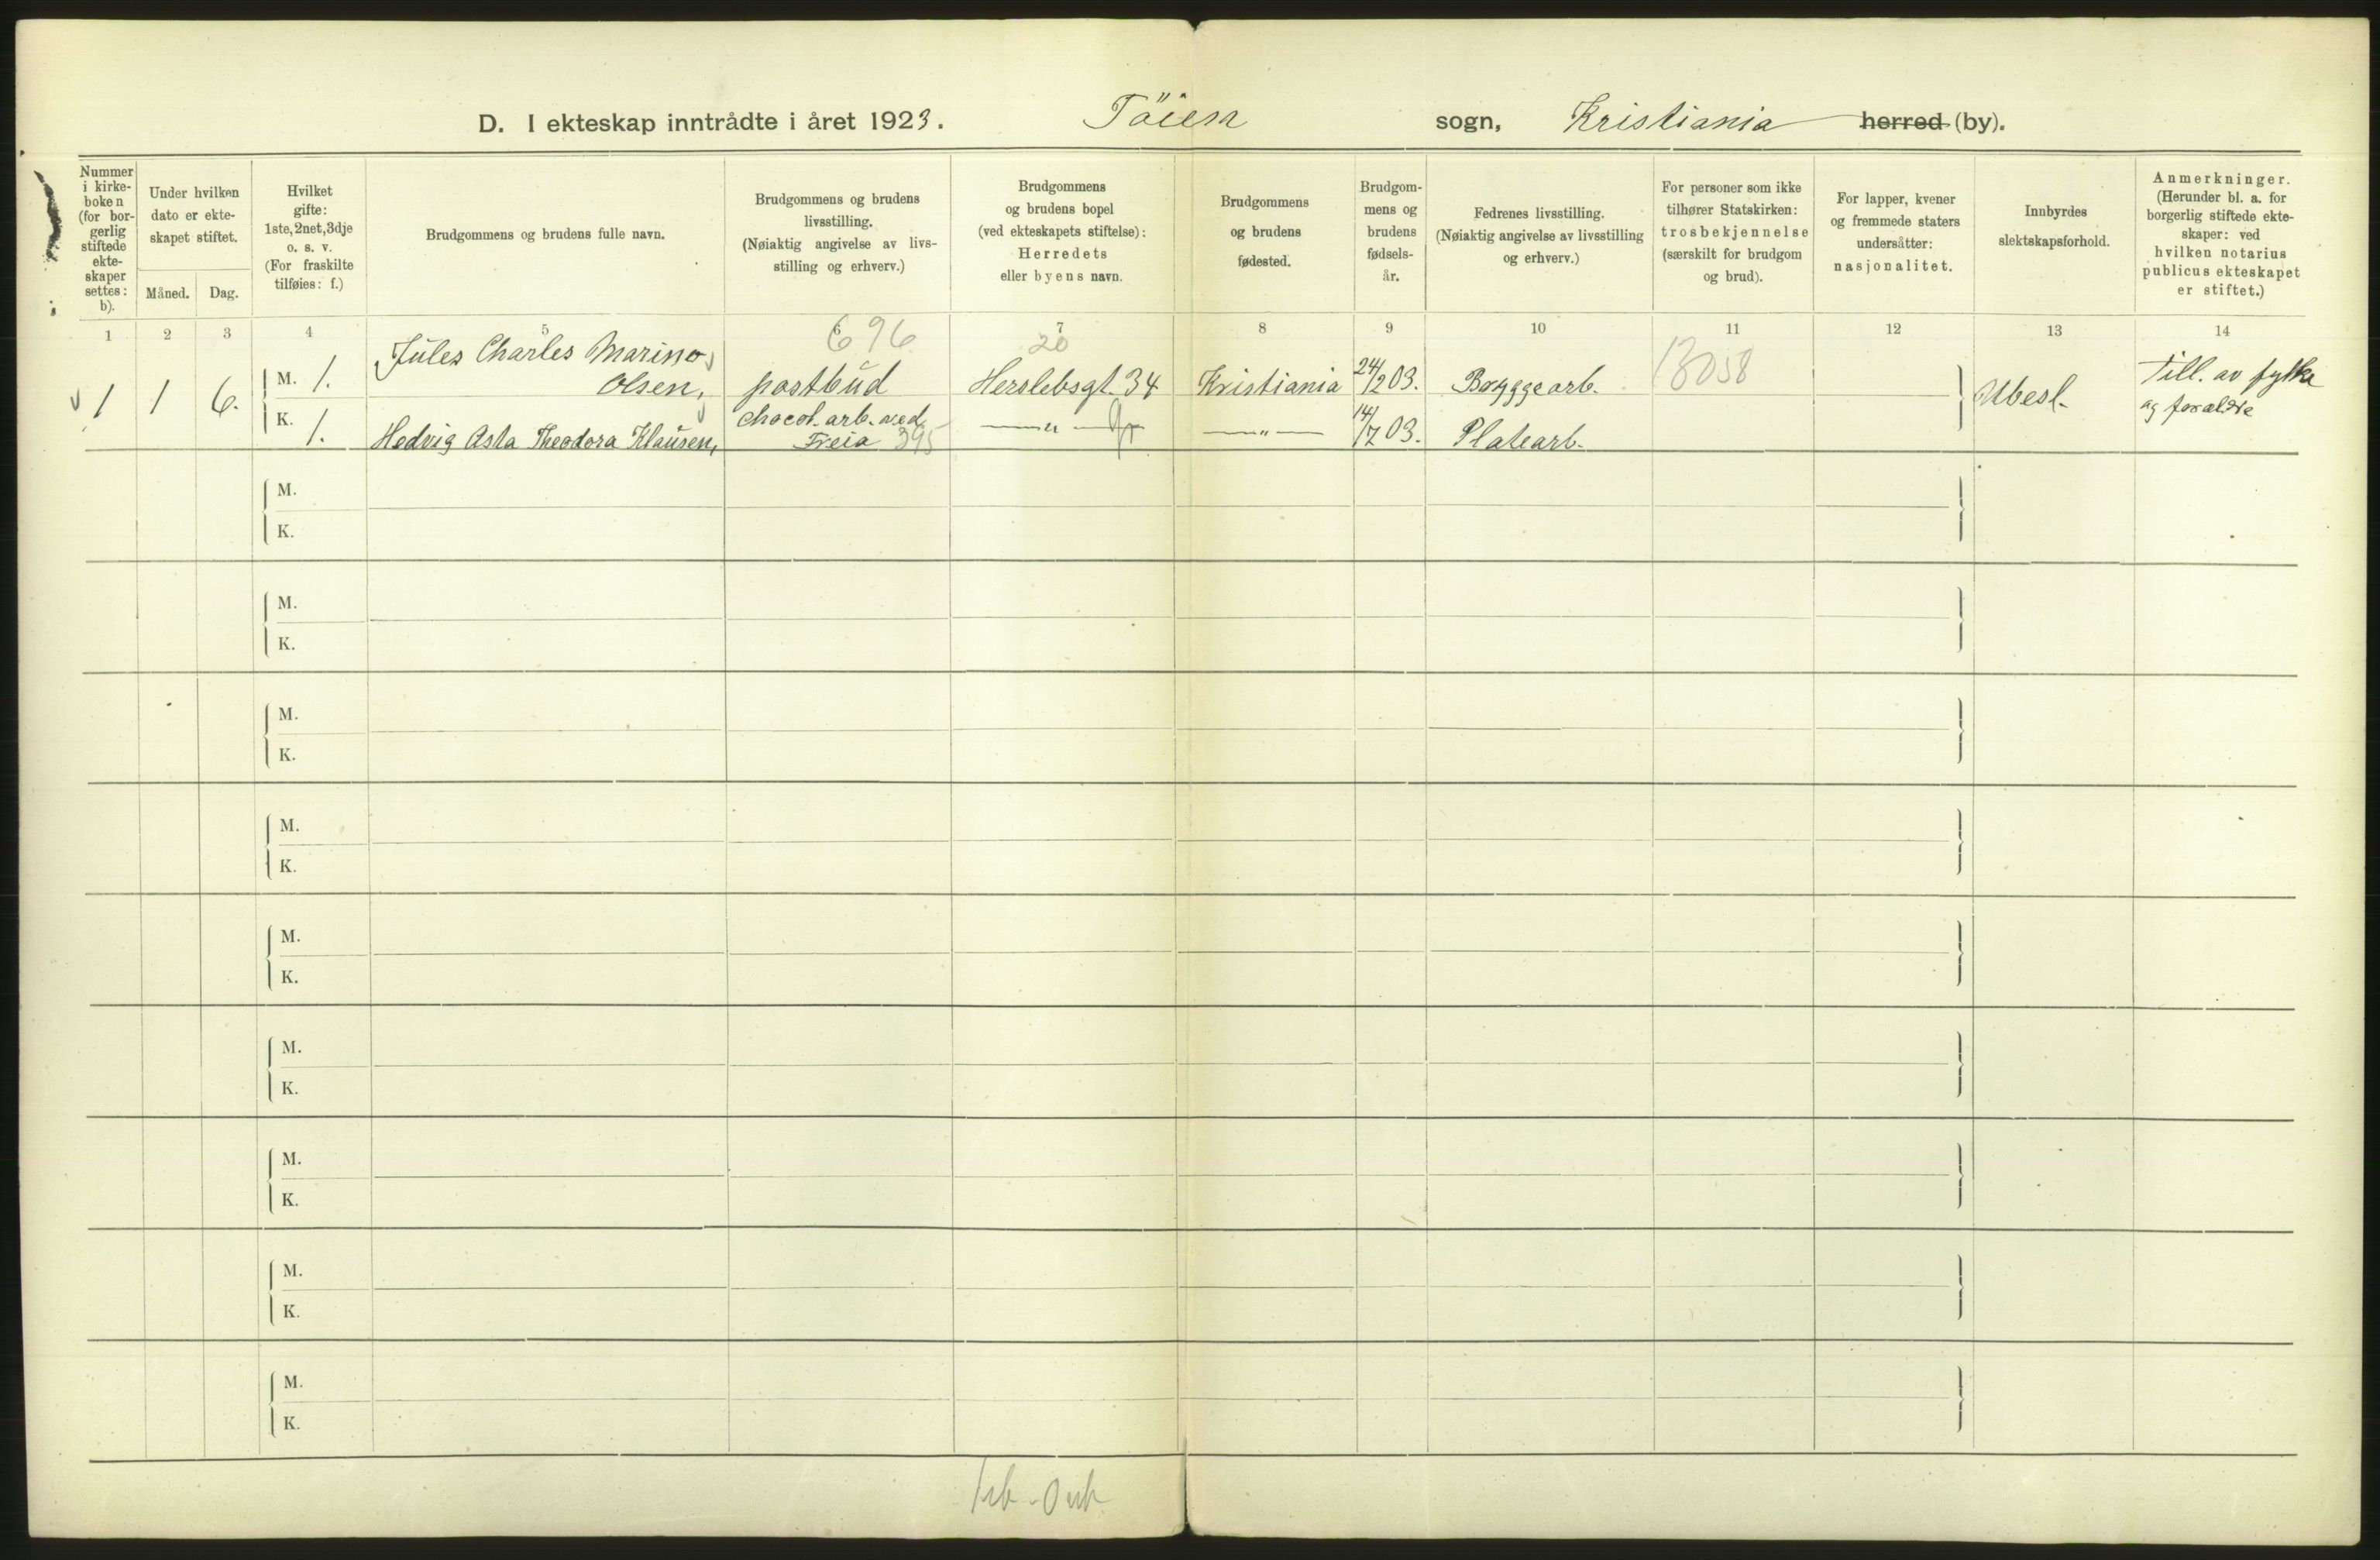 D. I ekteskap inntrådte i året 1923. Töien sogn, Kristiania herred (by).
Nummer i kirke- boken (for bor- gerlig stiftede ekte- skaper settes: b).
Under hvilken dato er ekte- skapet stiftet.
Måned. Dag.
Hvilket gifte: 1ste, 2net, 3dje o. s. v. (For fraskilte tilføies: f.)
Brudgommens og brudens fulle navn.
Brudgommens og brudens livsstilling. (Nøiaktig angivelse av livs- stilling og erhverv.)
Brudgommens og brudens bopel (ved ekteskapets stiftelse): Herredets eller byens navn.
Brudgommens og brudens fødested.
Brudgom- mens og brudens fødsels- år.
Fedrenes livsstilling. (Nøiaktig angivelse av livsstilling og erhverv.)
For personer som ikke tilhører Statskirken: trosbekjennelse (særskilt for brudgom og brud).
For lapper, kvener og fremmede staters undersåtter: nasjonalitet.
Innbyrdes slektskapsforhold.
Anmerkninger. (Herunder bl. a. for borgerlig stiftede ekte- skaper: ved hvilken notarius publicus ekteskapet er stiftet.)
1 2 3 4 5 6 7 8 9 10 11 12 13 14
696 20 13058
Jules Charles Marino
1 1 6. M. 1. Olsen, postbüd Herslebsgt. 34 Kristiania 24/2 03. Byggearb. Ubesl. Till. av fylke
og forældre
K. 1. Hedvig Asta Theodora Klaüsen, Chocol. arb. ved Freia 395 —„— —„— 14/7 03. Platearb.
M.
K.
M.
K.
M.
K.
M.
K.
M.
K.
M.
K.
M.
K.
M.
K.
M.
K.